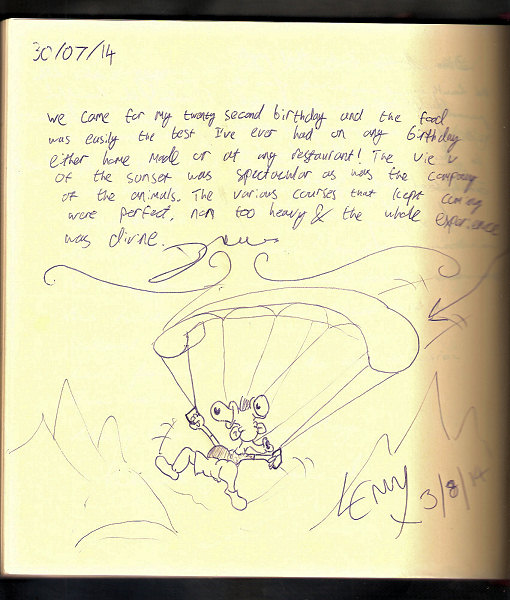 30/07/14
We came for my twenty second birthday and the food
was easily the best I've ever had on any birthday
either home made or at any restaurant! The view
of the sunset was spectacular as was the company
of the animals. The various courses that kept coming
were perfect, non too heavy & the whole experience
was divine.
KENNY 3/8/14